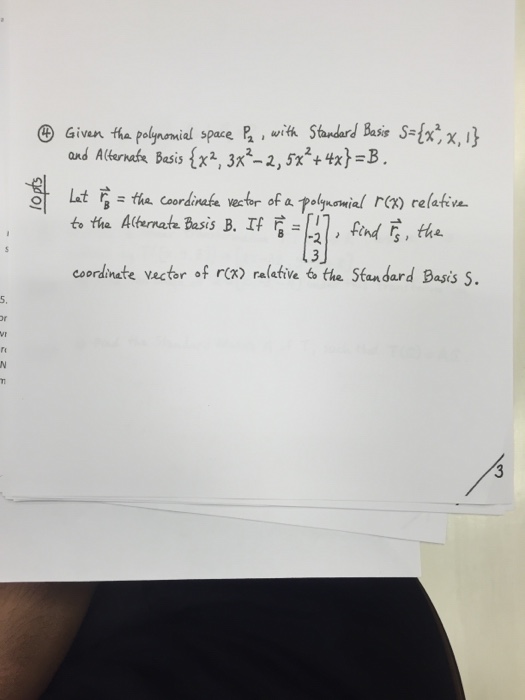 ④ Given the polynomial space P₂, with Standard Basis S={x², x, 1}
and Alternate Basis {x², 3x²-2, 5x²+4x}=B.
10 pts
Let r⃗_B = the coordinate vector of a polynomial r(x) relative
to the Alternate Basis B. If r⃗_B = [1 -2 3], find r⃗_S, the
coordinate vector of r(x) relative to the Standard Basis S.
s
5.
or
vi
N
3